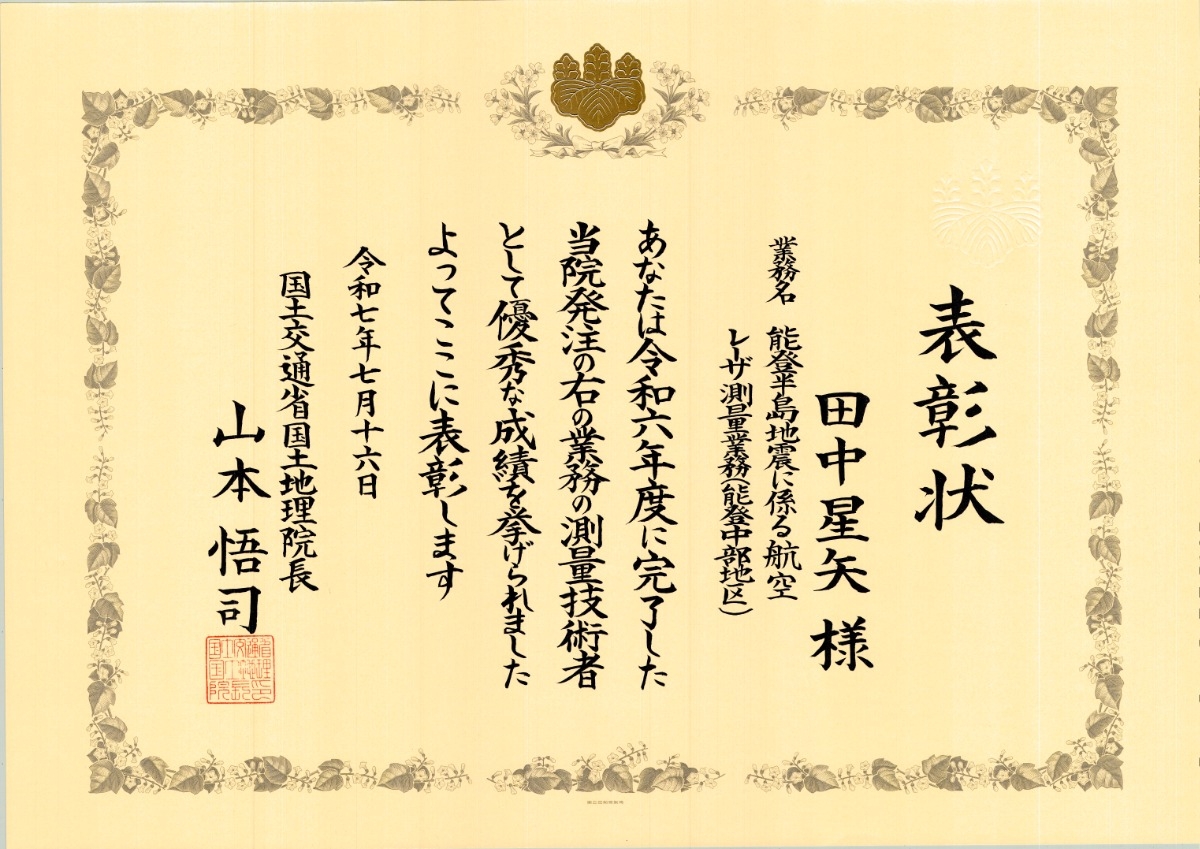 表彰状
田中星矢 様
業務名 能登半島地震に係る航空
レーザ測量業務(能登中部地区)
あなたは令和六年度に完了した
当院発注の右の業務の測量技術者
として優秀な成績を挙げられました
よってここに表彰します
令和七年七月十六日
国土交通省国土地理院長
山本悟司